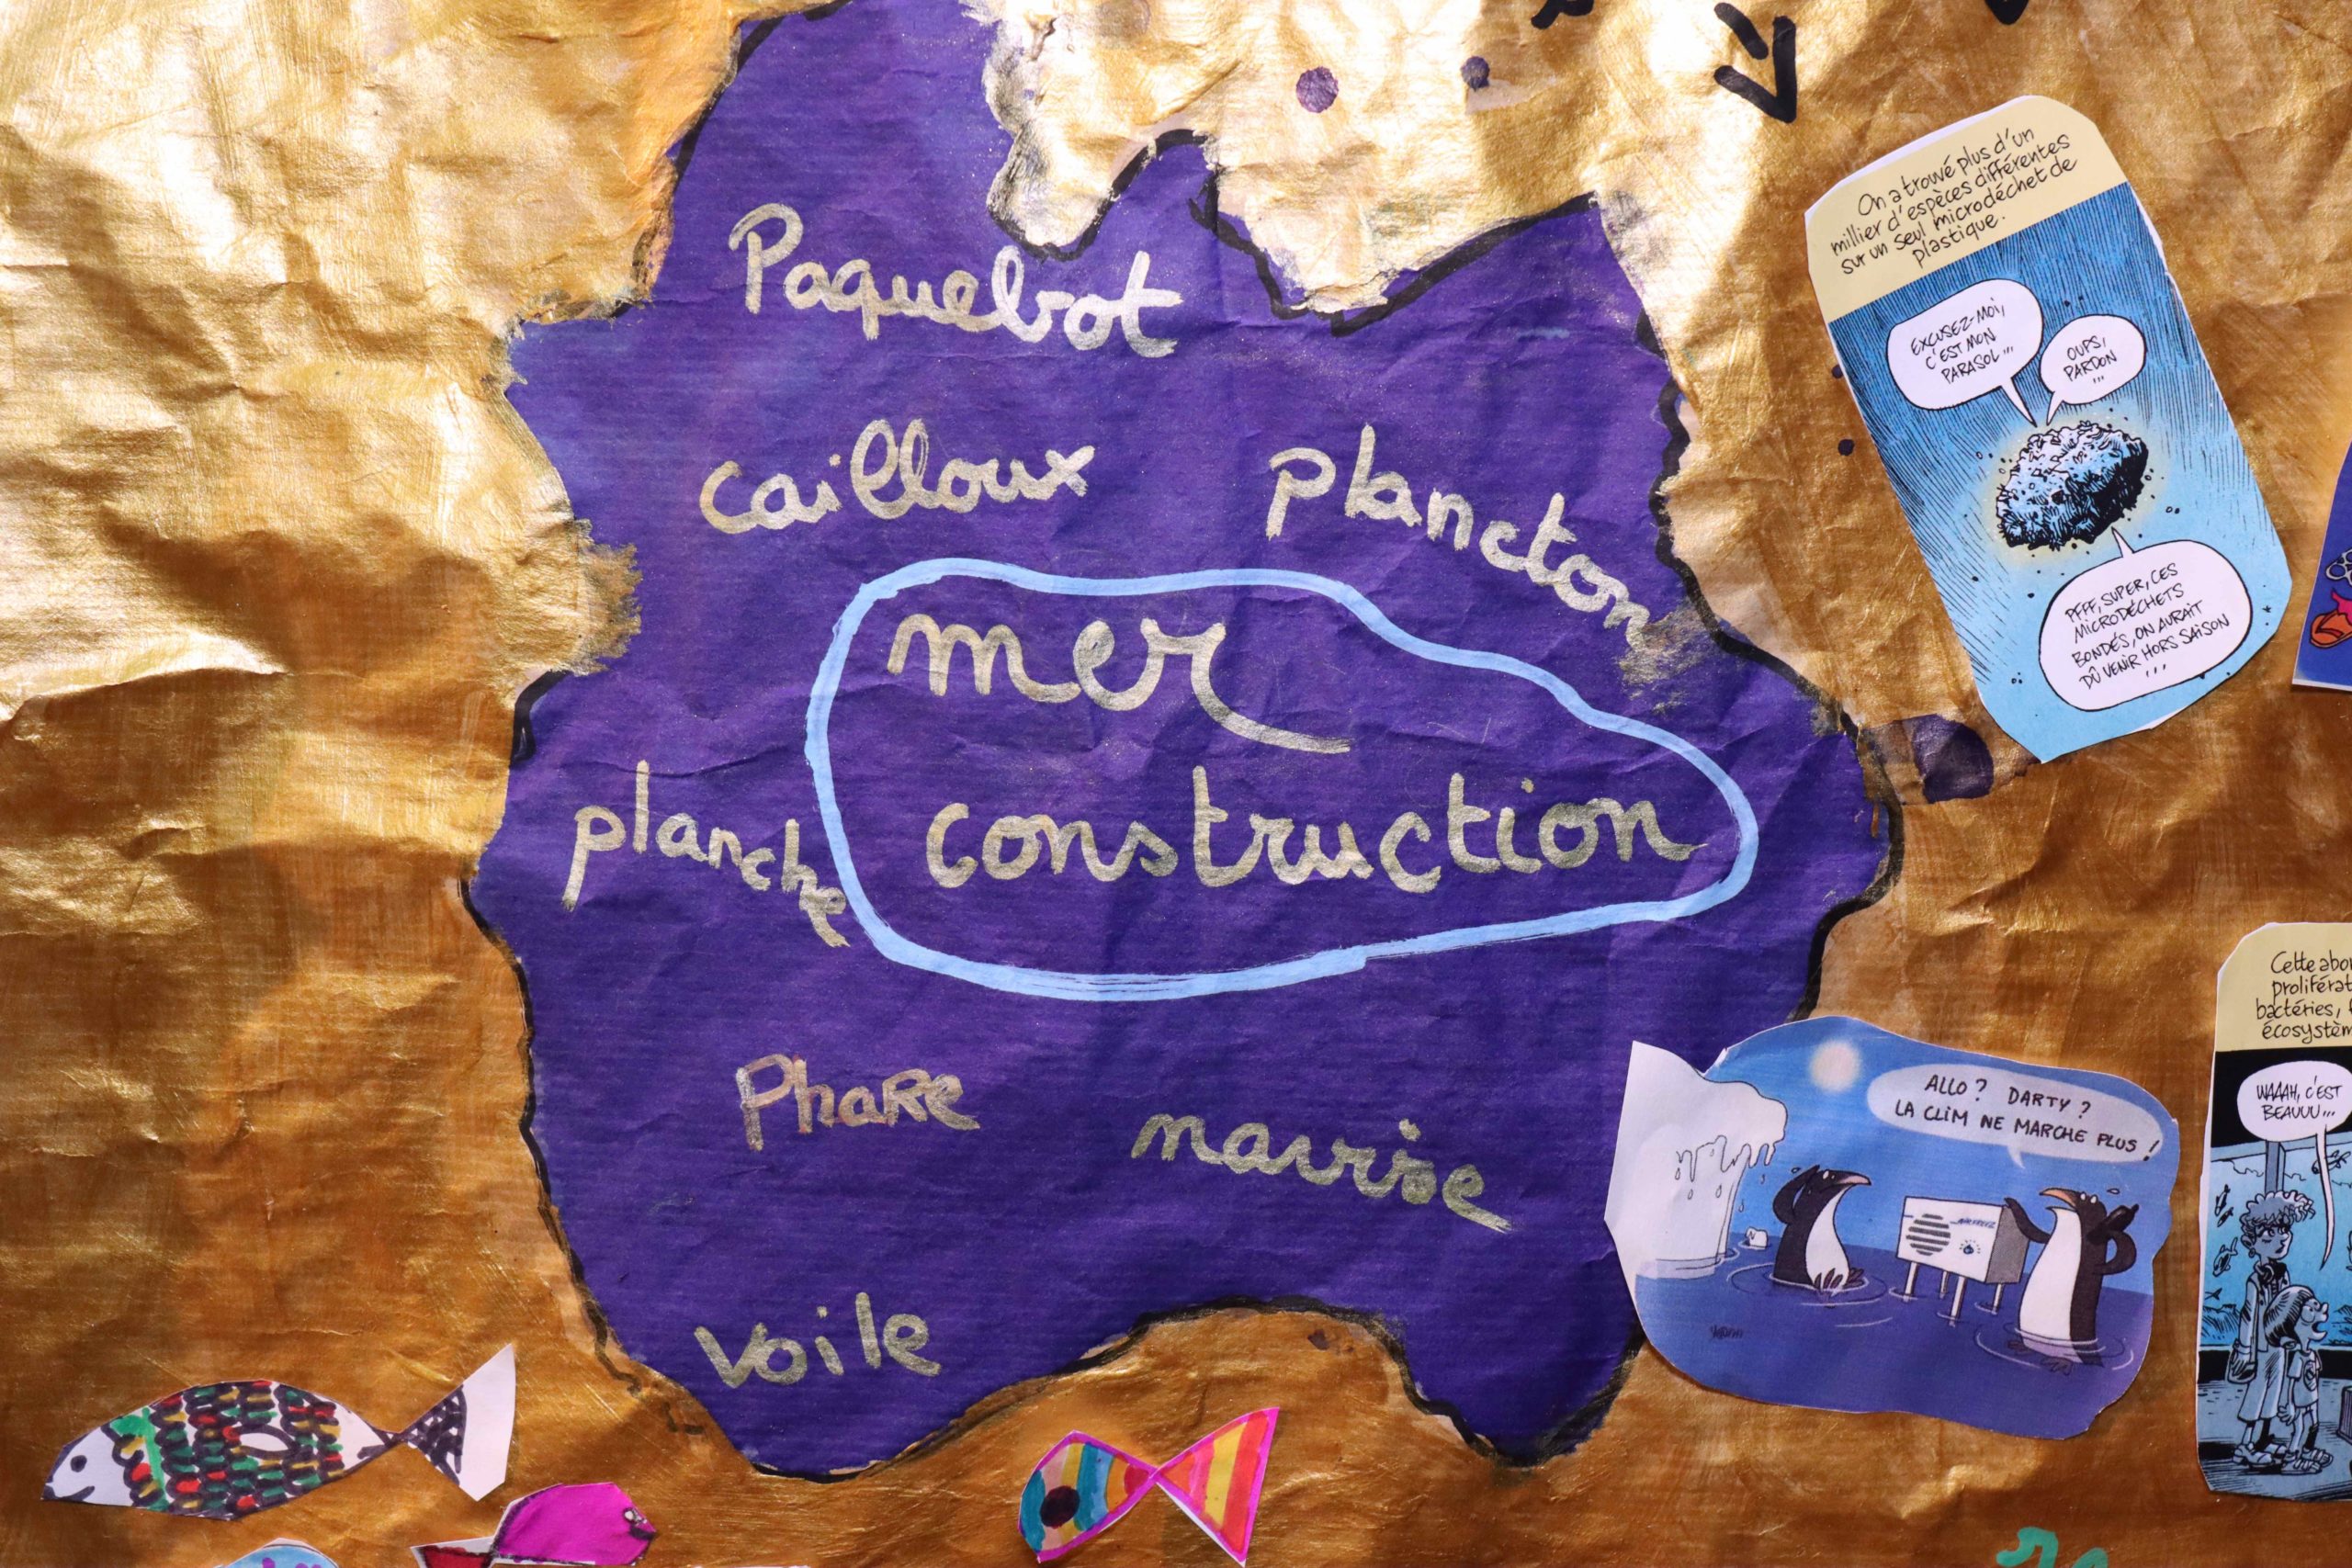 Paquebot
cailloux
plancton
mer
construction
planche
Phare
navire
Voile
On a trouvé plus d'un
millier d'espèces différentes
sur un seul microdéchet de
plastique.
EXCUSEZ-MOI,
C'EST MON
PARASOL...
OUPS,
PARDON
...
PFFF, SUPER, CES
MICRODÉCHETS
BONDÉS, ON AURAIT
DÛ VENIR HORS SAISON
...
ALLO ? DARTY ?
LA CLIM NE MARCHE PLUS !
Cette abo
proliférat
bactéries,
écosystèm
WAAAH, C'EST
BEAUUU...